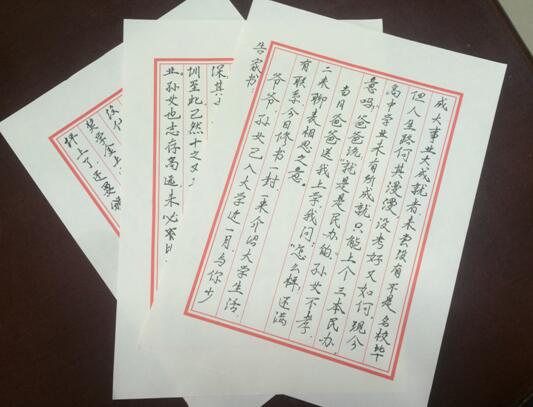 告家书
爷爷 孙女已入大学近一月与你少
有联系今日修书一封,一来介绍大学生活,
二来聊表相思之意。
当日爸爸送我上学我问:“怎么样,还满
意吗,爸爸说“就是是民办的,孙女不孝,
高中学业未有所成就只能上个三本民办,
但人生路何其漫漫,没考好又如何,现今
成大事业大成就者未尝没有不是名校毕
业。孙女也志存高远未必
圳至此已然十之又
深其
上了还要
奖学金上